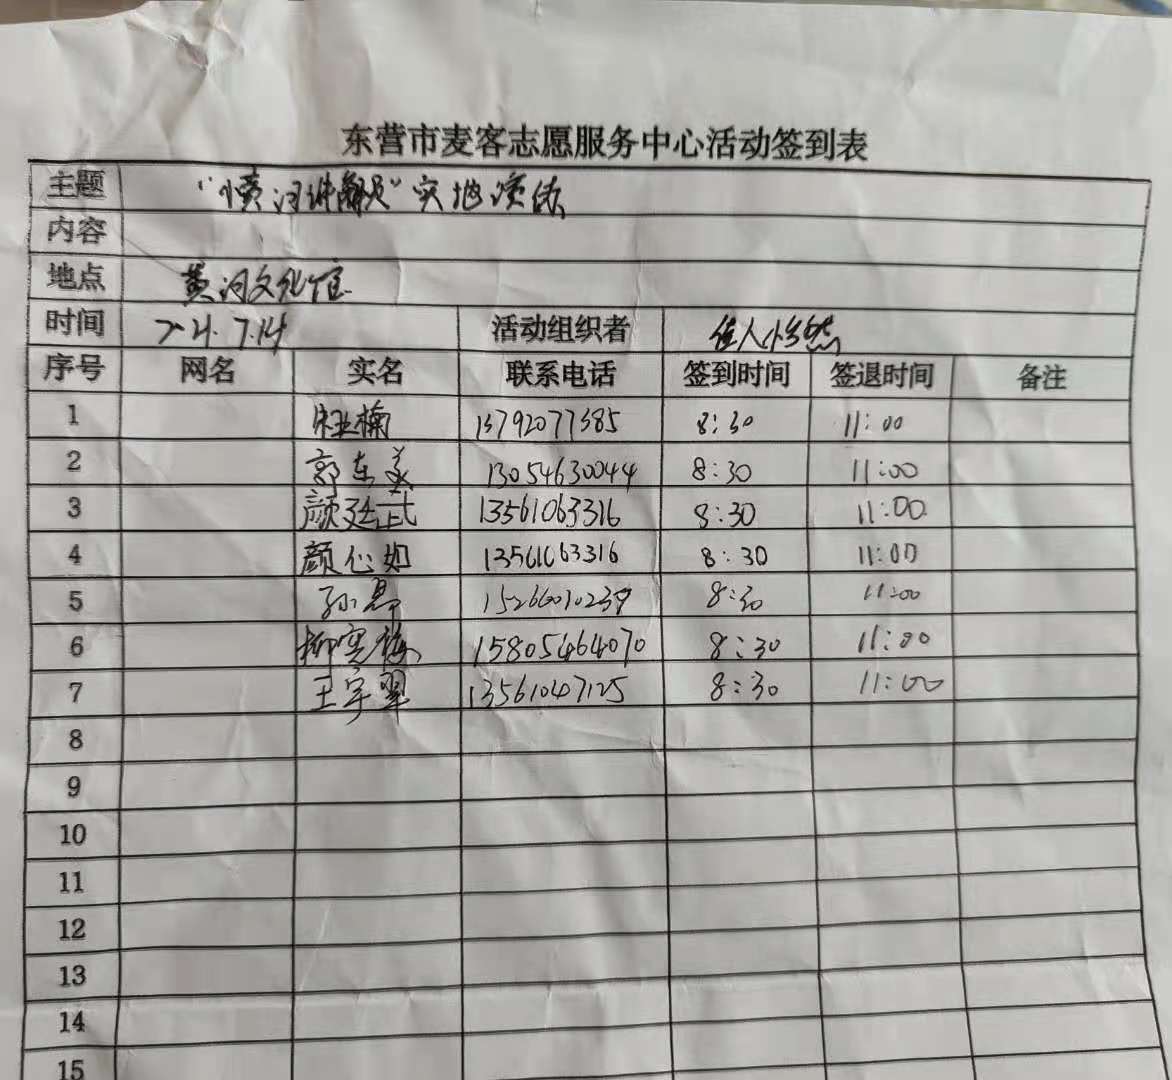 东营市麦客志愿服务中心活动签到表
主题 "黄河讲解员"实地演练
内容
地点 黄河文化馆
时间 7.14 活动组织者 佳人怡然
序号 网名 实名 联系电话 签到时间 签退时间 备注
1 楠 13792077385 8:30 11:00
2 郭东美 13054630044 8:30 11:00
3 颜廷武 13561063316 8:30 11:00
4 颜心如 13561063316 8:30 11:00
5 孙 8:30 11:00
6 柳 梅 15805464070 8:30 11:00
7 王宇翠 13561047125 8:30 11:00
8
9
10
11
12
13
14
15